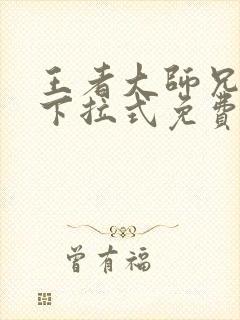 王者大師兄
下拉式免費
曾有福